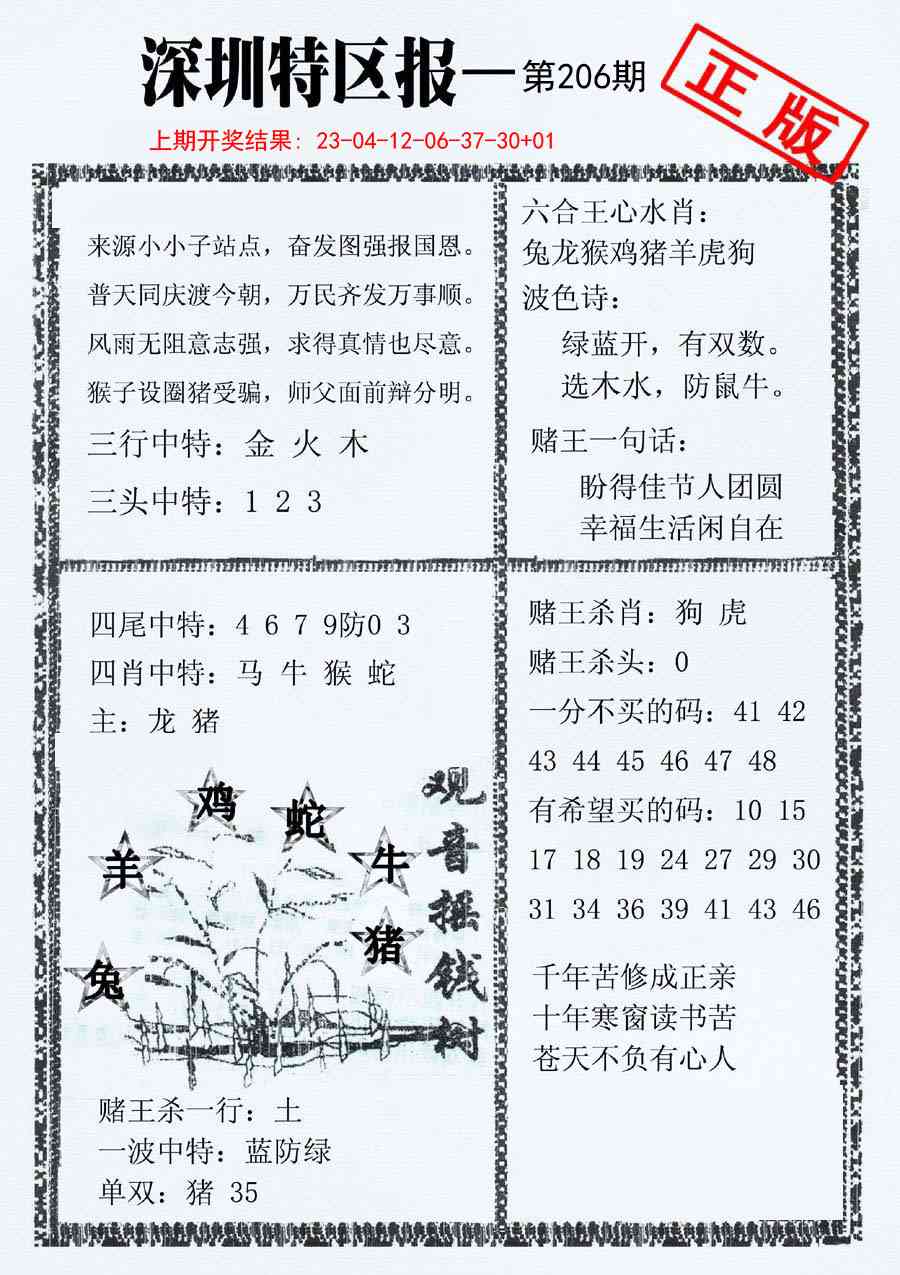 深圳特区报—第206期
正版
上期开奖结果：23-04-12-06-37-30+01
来源小小子站点，奋发图强报国恩。
普天同庆渡今朝，万民齐发万事顺。
风雨无阻意志强，求得真情也尽意。
猴子设圈猪受骗，师父面前辩分明。
三行中特：金 火 木
三头中特：1 2 3
六合王心水肖：
兔龙猴鸡猪羊虎狗
波色诗：
绿蓝开，有双数。
选木水，防鼠牛。
赌王一句话：
盼得佳节人团圆
幸福生活闲自在
四尾中特：4 6 7 9防0 3
四肖中特：马 牛 猴 蛇
主：龙 猪
鸡
蛇
羊
牛
猪
兔
观音摇钱树
赌王杀一行：土
一波中特：蓝防绿
单双：猪 35
赌王杀肖：狗 虎
赌王杀头：0
一分不买的码：41 42
43 44 45 46 47 48
有希望买的码：10 15
17 18 19 24 27 29 30
31 34 36 39 41 43 46
千年苦修成正亲
十年寒窗读书苦
苍天不负有心人